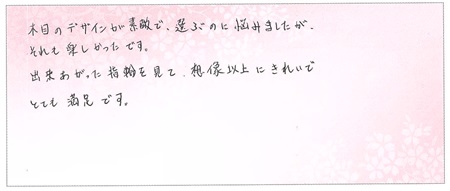 木目のデザインが素敵で、選ぶのに悩みましたが、
それも楽しかったです。
出来あがった指輪を見て、想像以上にきれいで
とても満足です。